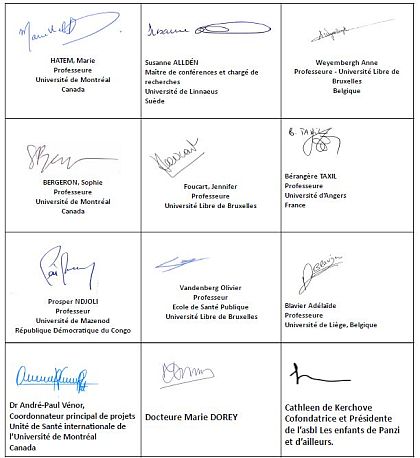 HATEM, Marie
Professeure
Université de Montréal
Canada
Susanne ALLDÉN
Maître de conférences et chargé de
recherches
Université de Linnaeus
Suède
Weyembergh Anne
Professeure - Université Libre de
Bruxelles
Belgique
BERGERON, Sophie
Professeure
Université de Montréal
Canada
Foucart, Jennifer
Professeure
Université Libre de Bruxelles
B. TAXIL
Bérangère TAXIL
Professeure
Université d'Angers
France
Prosper NDJOLI
Professeur
Université de Mazenod
République Démocratique du Congo
Vandenberg Olivier
Professeur
Ecole de Santé Publique
Université Libre de Bruxelles
Blavier Adélaïde
Professeure
Université de Liège, Belgique
Dr André-Paul Vénor,
Coordonnateur principal de projets
Unité de Santé internationale de
l'Université de Montréal
Canada
Docteure Marie DOREY
Cathleen de Kerchove
Cofondatrice et Présidente
de l'asbl Les enfants de Panzi
et d'ailleurs.